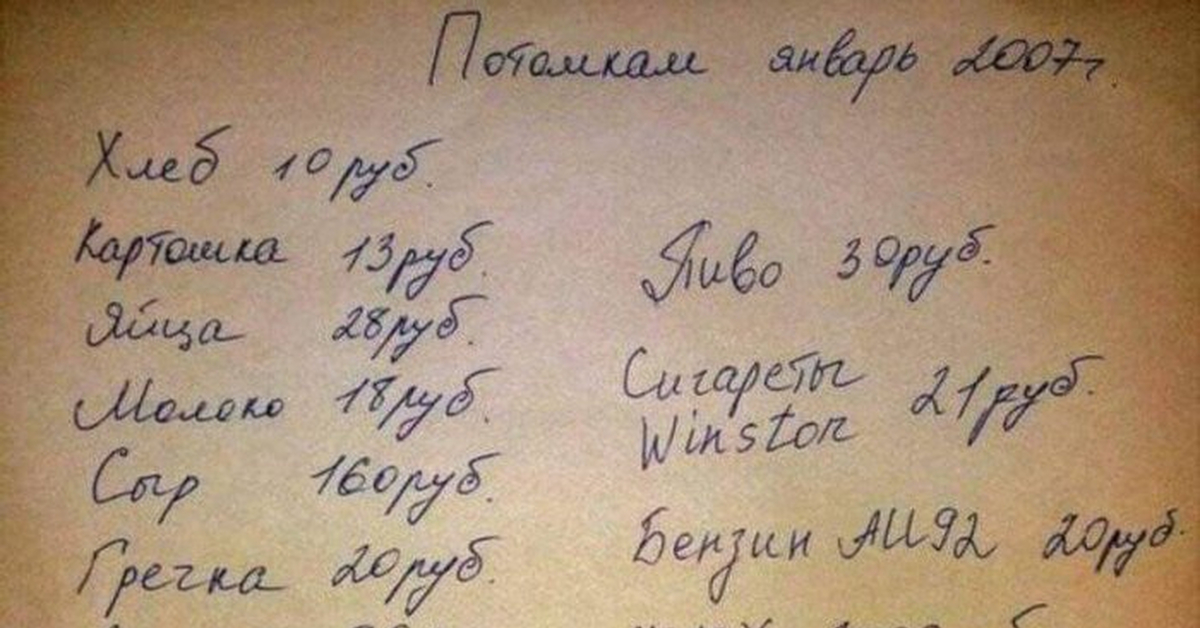 Потомкам январь 2007г.
Хлеб 10 руб.
Картошка 13 руб.
Яйца 28 руб.
Молоко 18 руб.
Сыр 160 руб.
Гречка 20 руб.
Пиво 30 руб.
Сигареты
Winston 21 руб.
Бензин АИ92 20 руб.